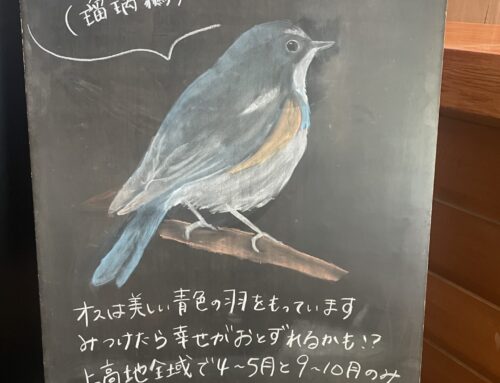 (瑠璃鶲)
オスは美しい青色の羽をもっています
みつけたら幸せがおとずれるかも!?
上高地全域で4〜5月と9〜10月のみ